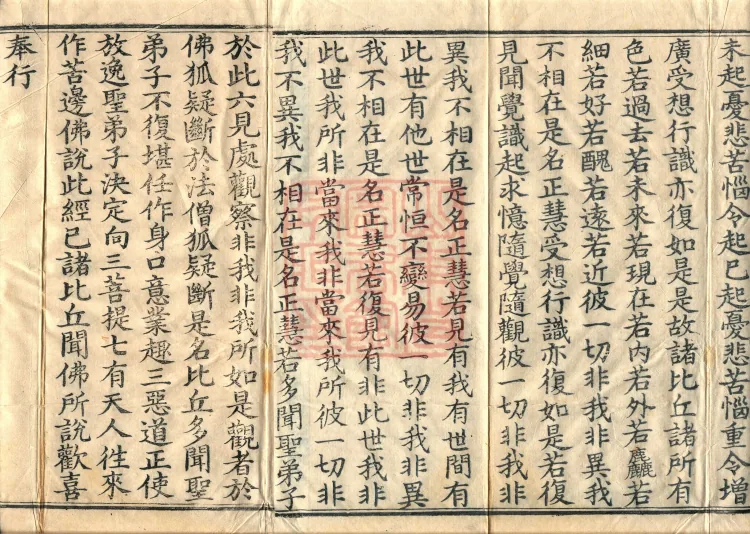 未起憂悲苦惱令起已起憂悲苦惱重令增
廣受想行識亦復如是是故諸比丘諸所有
色若過去若未來若現在若內若外若麤若
細若好若醜若遠若近彼一切非我非異我
不相在是名正慧受想行識亦復如是若復
見聞覺識起求憶隨覺隨觀彼一切非我非
異我不相在是名正慧若見有我有世間有
此世有他世常恒不變易彼一切非我非異
我不相在是名正慧若復見有非此世我非
此世我所非當來我非當來我所彼一切非
我不異我不相在是名正慧若多聞聖弟子
於此六見處觀察非我非我所如是觀者於
佛狐疑斷於法僧狐疑斷是名比丘多聞聖
弟子不復堪任作身口意業趣三惡道正使
放逸聖弟子決定向三菩提七有天人往來
作苦邊佛說此經已諸比丘聞佛所說歡喜
奉行